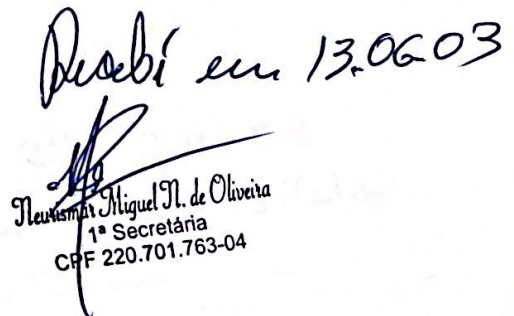 Recebi em 13.06.03
Neurismar Miguel N. de Oliveira
1ª Secretária
CPF 220.701.763-04